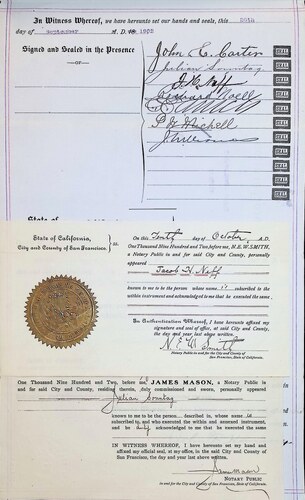 In Witness Whereof, we have hereunto set our hands and seals, this 29th
day of September A. D. 1902
Signed and Sealed in the Presence
—OF—
John E. Carter
Julian Sonntag
J. H. Neff
SEAL
SEAL
SEAL
SEAL
SEAL
SEAL
SEAL
SEAL
SEAL
SEAL
State of California,
City and County of San Francisco.
ss.
On this Tenth day of October A.D.
One Thousand Nine Hundred and Two, before me, N. E. W. SMITH,
a Notary Public in and for said City and County, personally
appeared
Jacob H. Neff
known to me to be the person whose name is subscribed to the
within instrument and acknowledged that he executed the same.
In Authentication Whereof, I have hereunto affixed my
signature and seal of office, at said City and County, the
day and year last above written.
N. E. W. Smith
Notary Public
in and for the City and County of
San Francisco, State of California.
One Thousand Nine Hundred and Two, before me, JAMES MASON, a Notary Public in
and for said City and County, residing therein, duly commissioned and sworn, personally appeared
Julian Sonntag
known to me to be the person described in, whose name is
subscribed to, and who executed the within and annexed instrument,
and he duly acknowledged to me that he executed the same.
IN WITNESS WHEREOF, I have hereunto set my hand and
affixed my official seal, at my office, in the said City and County of
San Francisco, the day and year last above written.
James Mason
NOTARY PUBLIC
In and for said City and County of San Francisco, State of California.